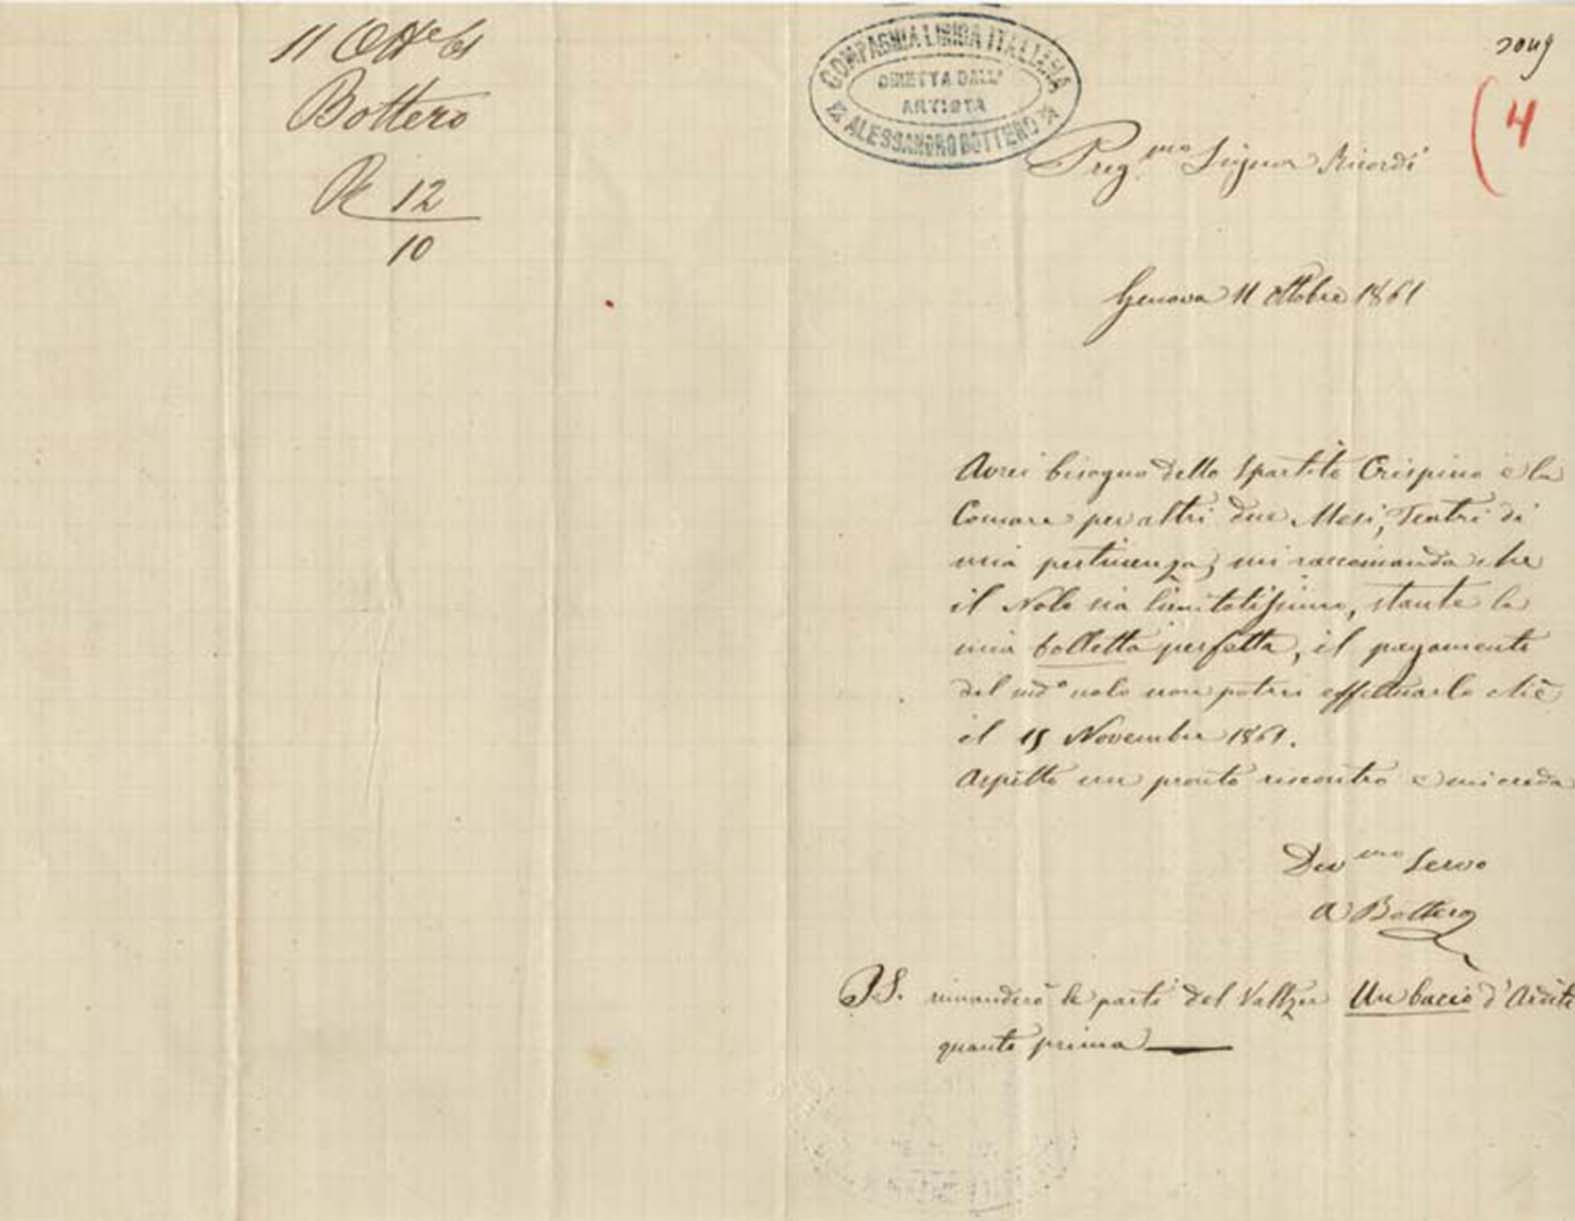 11 Ott.e 61
Bottero
R 12
10
COMPAGNIA LIRICA ITALIANA
DIRETTA DALL'
ARTISTA
ALESSANDRO BOTTERO
4
Preg.mo Signor Ricordi
Genova 11 Ottobre 1861
Avrei bisogno dello Spartito Crispino e la
Comare per altri due Mesi, Teatri di
mia pertinenza; mi raccomando che
il Nolo sia limitatissimo, stante la
mia bolletta perfetta, il pagamento
del md.o nolo non potrei effettuarlo chè
il 15 Novembre 1861.
Aspetto un pronto riscontro e mi creda
Dev.mo Servo
A Bottero
PS. rimanderò le parti del Valtzer Un bacio d'Arditi
quanto prima